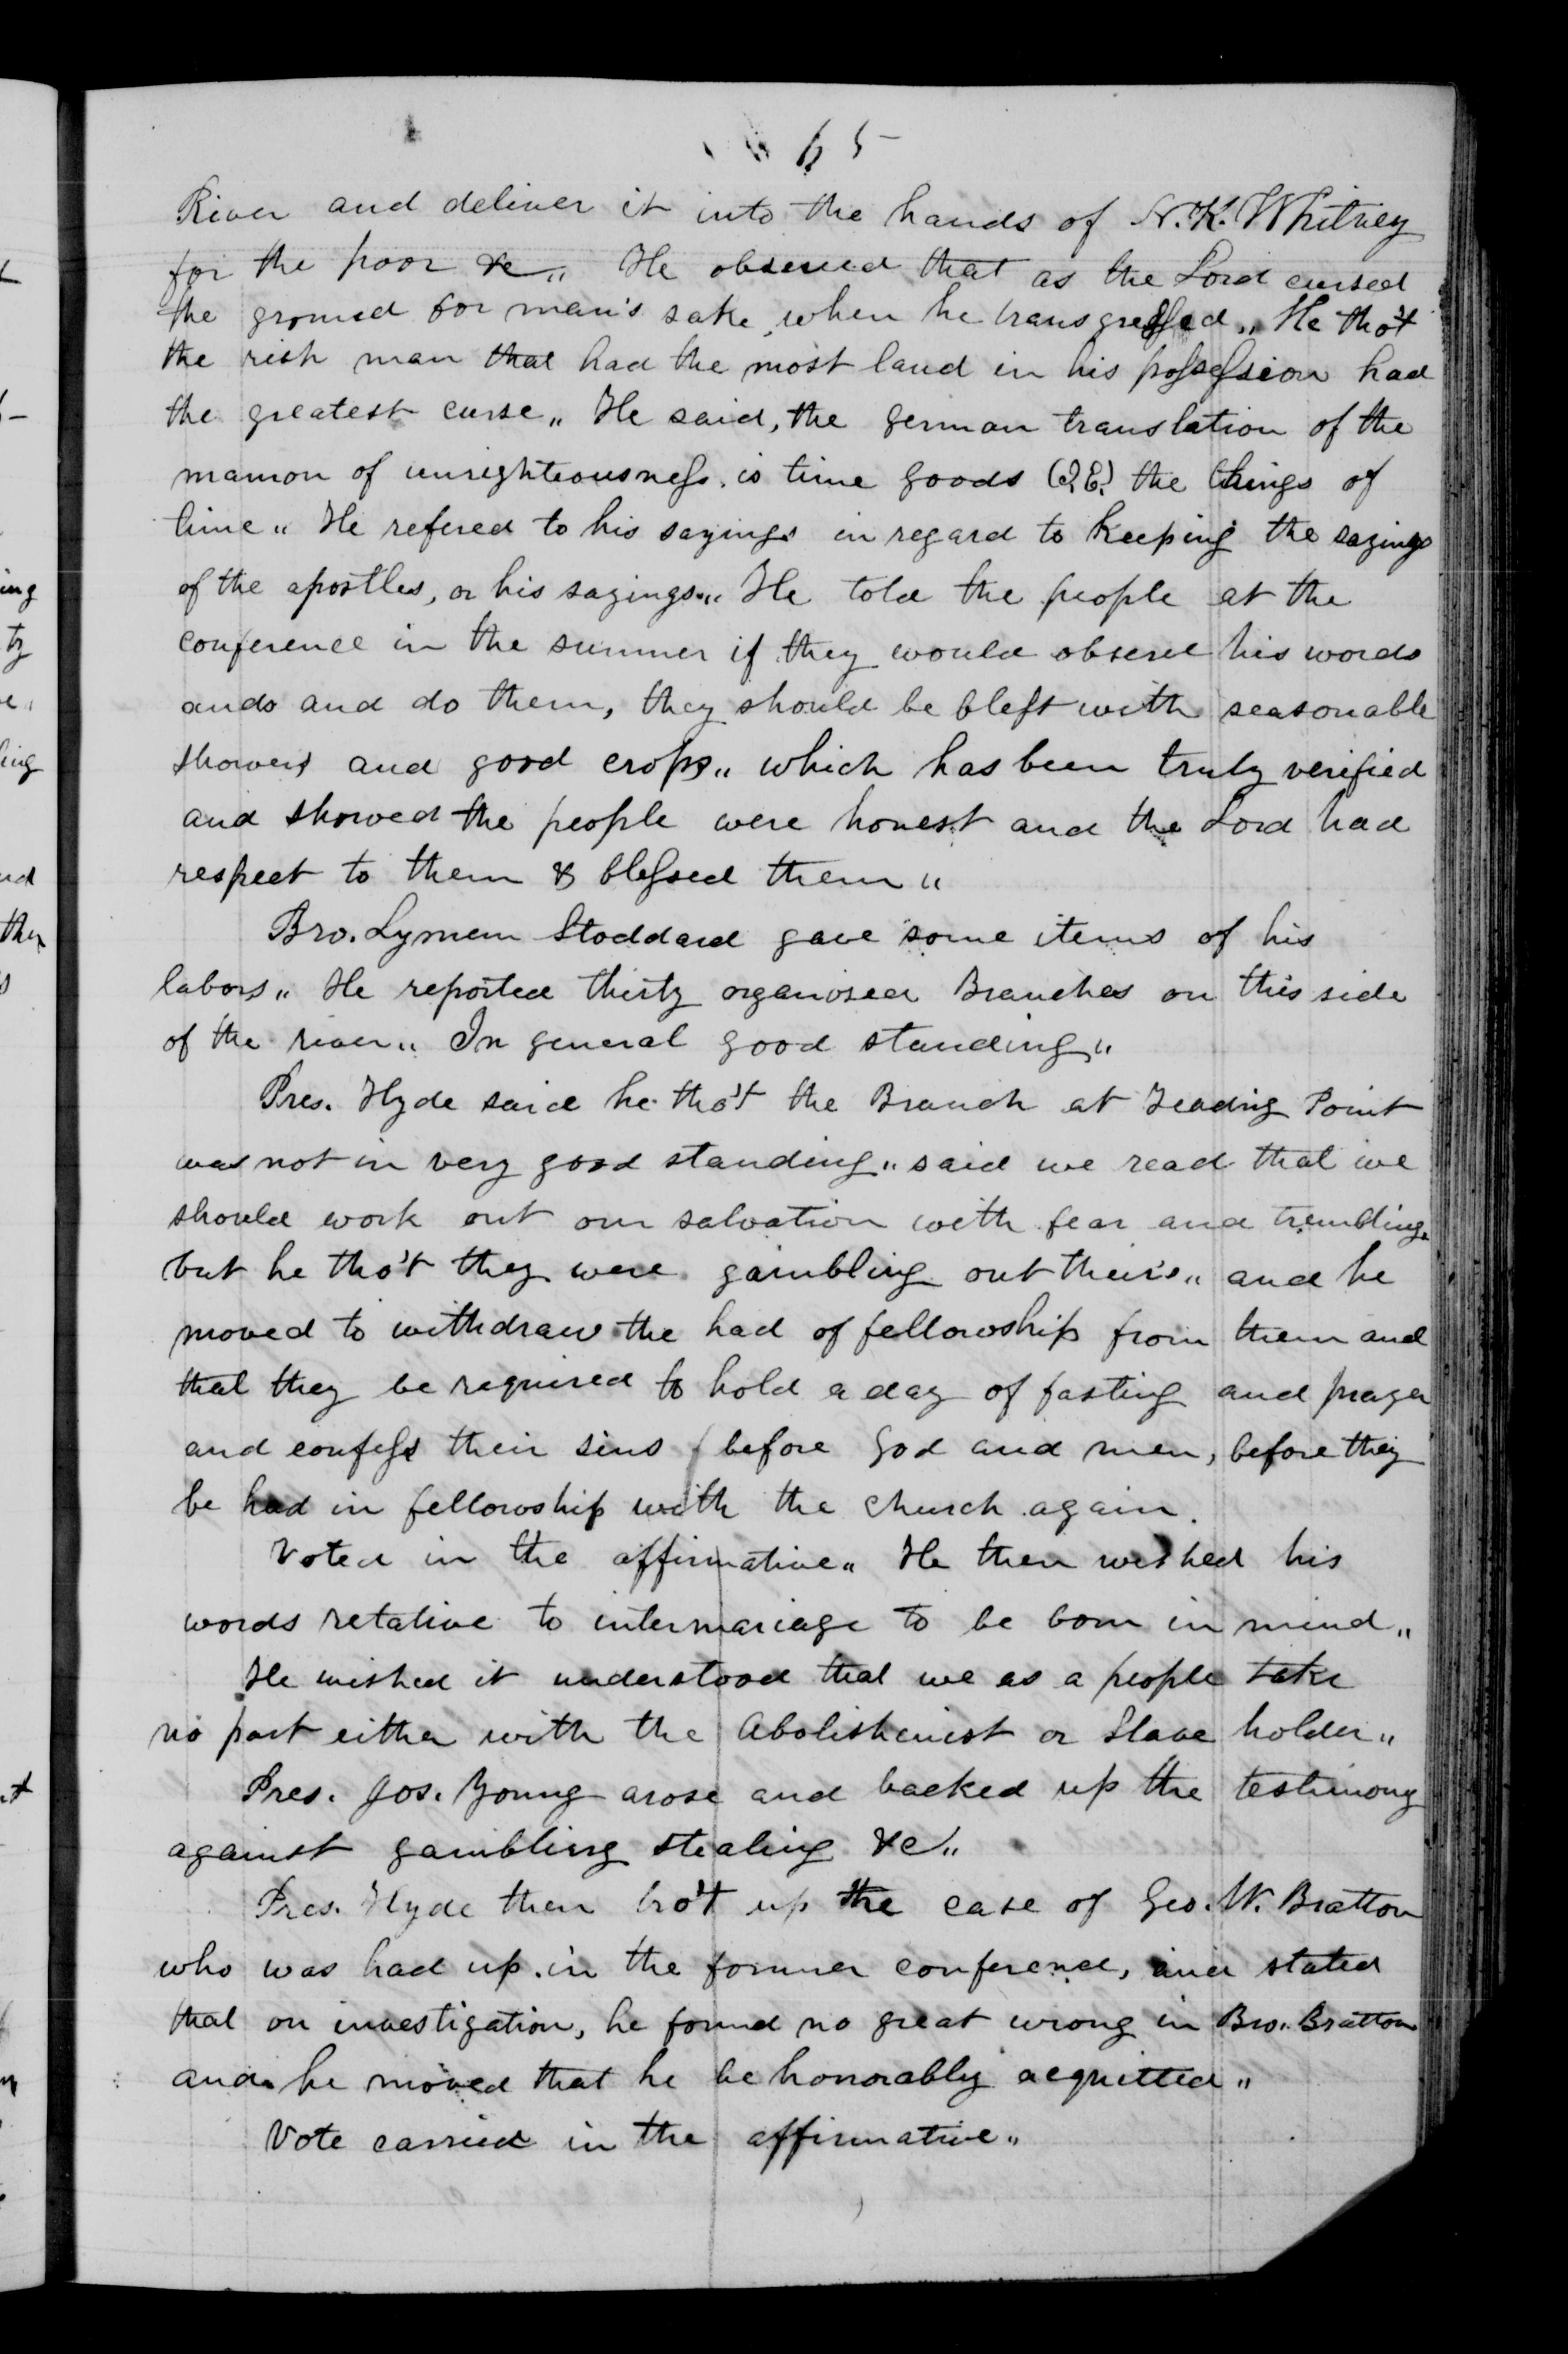 65
River and deliver it into the hands of N. K. Whitney
for the poor &c„ He observed that as the Lord cursed
the ground for man's sake, when he transgressed„ He tho't
the rich man that had the most land in his possession had
the greatest curse„ He said, the german translation of the
mamon of unrighteousness. is time goods (I,E,) the things of
time„ He refered to his sayings in regard to keeping the sayings
of the apostles, or his sayings„ He told the people at the
conference in the summer if they would observe his words
ands and do them, they should be blest with seasonable
showers and good crops„ which has been truly verified
and showed the people were honest and the Lord had
respect to them & blessed them„
Bro. Lyman Stoddard gave some items of his
labors„ He reported thirty organised Branches on this side
of the river„ In general good standing„
Pres. Hyde said he tho't the Branch at Point
was not in very good standing„ said we read that we
should work out our salvation with fear and trembling.
but he tho't they were gambling out their's„ and he
moved to withdraw the had of fellowship from them and
that they be required to hold a day of fasting and prayer
and confess their sins before God and men, before they
be had in fellowship with the church again.
Voted in the affirmative„ He then wished his
words relative to intermariage to be born in mind„
He wished it understood that we as a people take
no part either with the Abolishenist or Slave holder„
Pres. Jos. Young arose and backed up the testimony
against gambling stealing &c„
Pres. Hyde then bro't up the case of Geo. W. Bratton
who was had up in the former conference, and stated
that on investigation, he found no great wrong in Bro. Bratton
and he moved that he be honorably acquitted„
Vote carried in the affirmative„